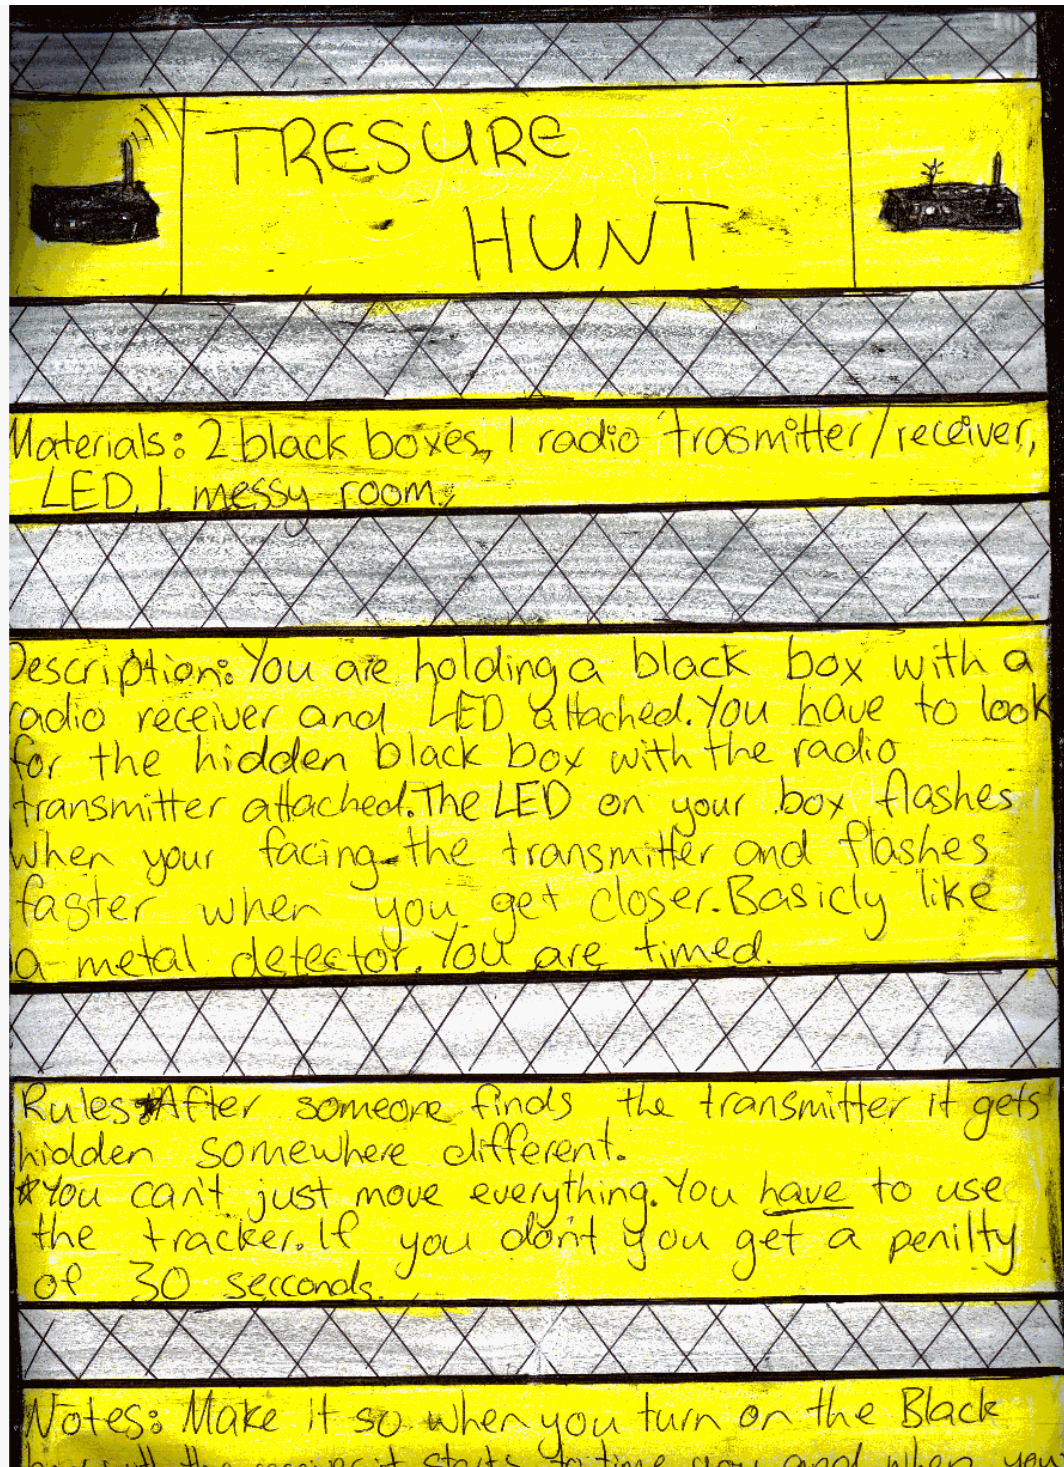 TRESURE
HUNT
Materials: 2 black boxes, 1 radio trasmitter/receiver,
LED, 1 messy room,
Description: You are holding a black box with a
radio receiver and LED attached. You have to look
for the hidden black box with the radio
transmitter attached. The LED on your box flashes
when your facing the transmitter and flashes
faster when you get closer. Basicly like
a metal detector. You are timed.
Rules: *After someone finds the transmitter it gets
hidden somewhere different.
*You can't just move everything. You have to use
the tracker. If you don't you get a penilty
of 30 secconds.
Notes: Make it so when you turn on the Black
the receiver it starts to time you and when you